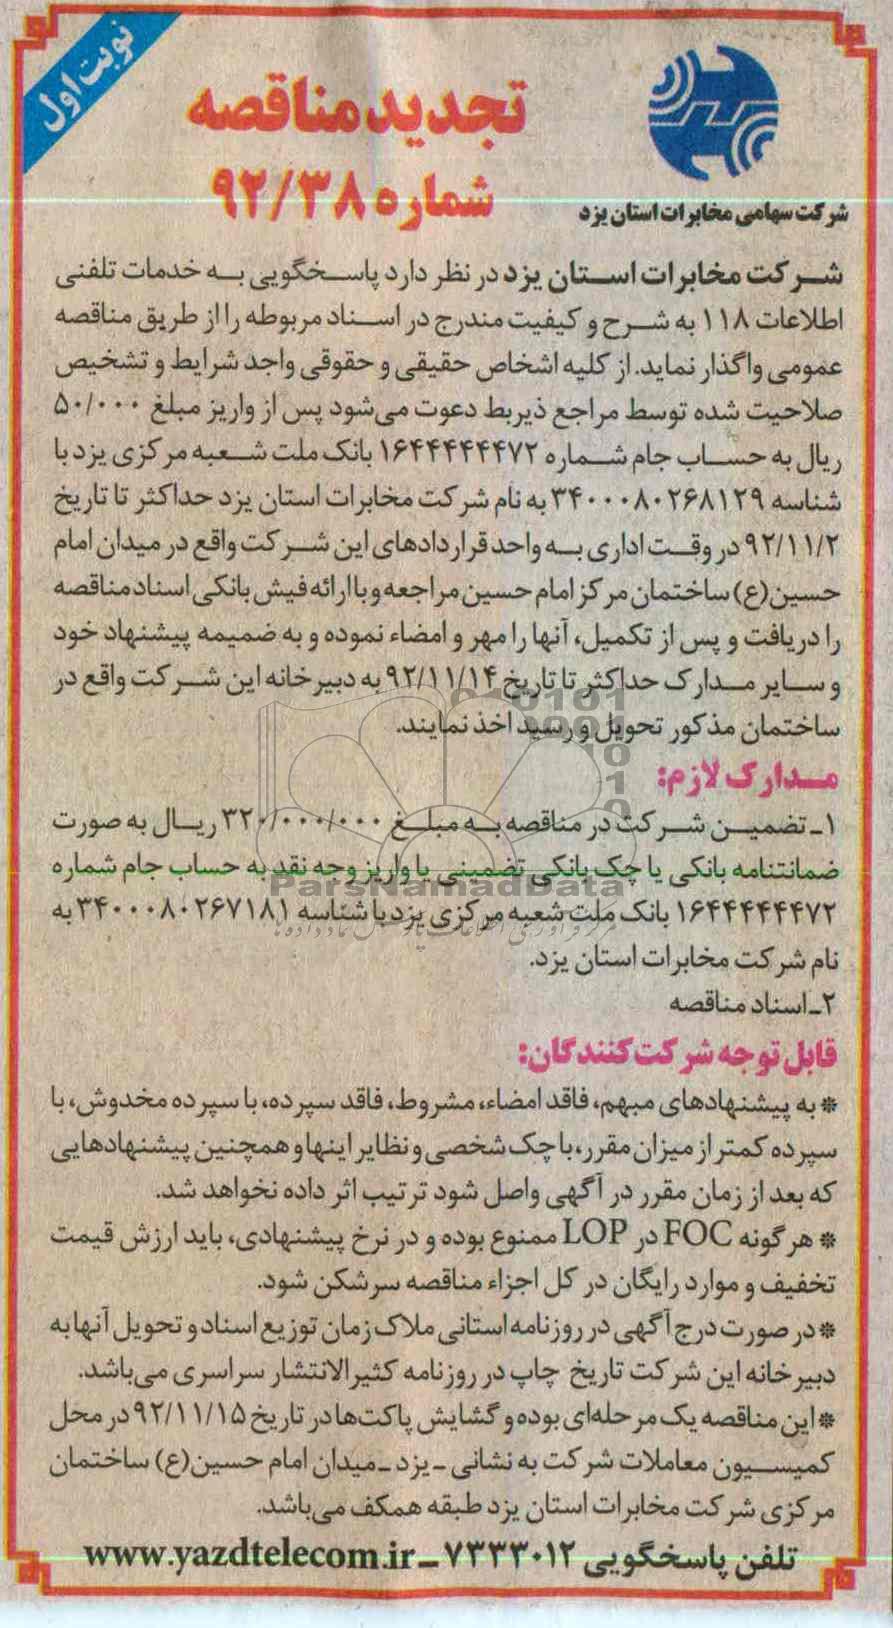 نوبت اول
تجدید مناقصه
شماره ۹۲/۳۸
شرکت سهامی مخابرات استان یزد
شرکت مخابرات استان یزد در نظر دارد پاسخگویی به خدمات تلفنی
اطلاعات ۱۱۸ به شرح و کیفیت مندرج در اسناد مربوطه را از طریق مناقصه
عمومی واگذار نماید. از کلیه اشخاص حقیقی و حقوقی واجد شرایط و تشخیص
صلاحیت شده توسط مراجع ذیربط دعوت می‌شود پس از واریز مبلغ ۵۰/۰۰۰
ریال به حساب جام شماره ۱۶۴۴۴۴۴۴۷۲ بانک ملت شعبه مرکزی یزد با
شناسه ۳۴۰۰۰۸۰۲۶۸۱۲۹ به نام شرکت مخابرات استان یزد حداکثر تا تاریخ
۹۲/۱۱/۲ در وقت اداری به واحد قراردادهای این شرکت واقع در میدان امام
حسین(ع) ساختمان مرکز امام حسین مراجعه و با ارائه فیش بانکی اسناد مناقصه
را دریافت و پس از تکمیل، آنها را مهر و امضاء نموده و به ضمیمه پیشنهاد خود
و سایر مدارک حداکثر تا تاریخ ۹۲/۱۱/۱۴ به دبیرخانه این شرکت واقع در
ساختمان مذکور تحویل و رسید اخذ نمایند.
مدارک لازم:
۱ـ تضمین شرکت در مناقصه به مبلغ ۳۲۰/۰۰۰/۰۰۰ ریال به صورت
ضمانتنامه بانکی یا چک بانکی تضمینی یا واریز وجه نقد به حساب جام شماره
۱۶۴۴۴۴۴۴۷۲ بانک ملت شعبه مرکزی یزد با شناسه ۳۴۰۰۰۸۰۲۶۷۱۸۱ به
نام شرکت مخابرات استان یزد.
۲ـ اسناد مناقصه
قابل توجه شرکت‌کنندگان:
* به پیشنهادهای مبهم، فاقد امضاء، مشروط، فاقد سپرده، با سپرده مخدوش، با
سپرده کمتر از میزان مقرر، با چک شخصی و نظایر اینها و همچنین پیشنهادهایی
که بعد از زمان مقرر در آگهی واصل شود ترتیب اثر داده نخواهد شد.
* هر گونه FOC در LOP ممنوع بوده و در نرخ پیشنهادی، باید ارزش قیمت
تخفیف و موارد رایگان در کل اجزاء مناقصه سرشکن شود.
* در صورت درج آگهی در روزنامه استانی ملاک زمان توزیع اسناد و تحویل آنها به
دبیرخانه این شرکت تاریخ چاپ در روزنامه کثیرالانتشار سراسری می‌باشد.
* این مناقصه یک مرحله‌ای بوده و گشایش پاکت‌ها در تاریخ ۹۲/۱۱/۱۵ در محل
کمیسیون معاملات شرکت به نشانی ـ یزد ـ میدان امام حسین(ع) ساختمان
مرکزی شرکت مخابرات استان یزد طبقه همکف می‌باشد.
تلفن پاسخگویی ۷۳۳۳۰۱۲ ـ www.yazdtelecom.ir
ParsNamadData